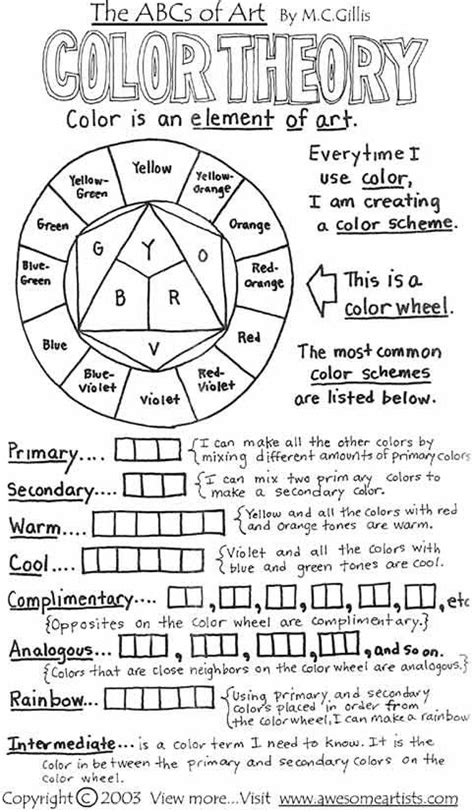 The ABCs of Art By M.C.Gillis
COLOR THEORY
Color is an element of art.
Everytime I
use color,
I am creating
a color scheme.
Yellow
Yellow-
Orange
Orange
Red-
Orange
Red
Red-
Violet
Violet
Blue-
Violet
Blue
Blue-
Green
Green
Yellow-
Green
G
Y
O
B
R
V
This is a
color wheel.
The most common
color schemes
are listed below.
Primary.... {I can make all the other colors by
mixing different amounts of primary colors
Secondary.... {I can mix two primary colors to
make a secondary color.
Warm.... {Yellow and all the colors with red
and orange tones are warm.
Cool.... {Violet and all the colors with
blue and green tones are cool.
Complimentary.... , , , , , , etc
{Opposites on the color wheel are complimentary.}
Analogous... , , , , and so on.
{Colors that are close neighbors on the color wheel are analogous.}
Rainbow... {Using primary and secondary
colors placed in order from
the color wheel, I can make a rainbow
Intermediate... is a color term I need to know. It is the
color in between the primary and secondary colors on the
color wheel.
Copyright © 2003 View more...Visit www.awesomeartists.com